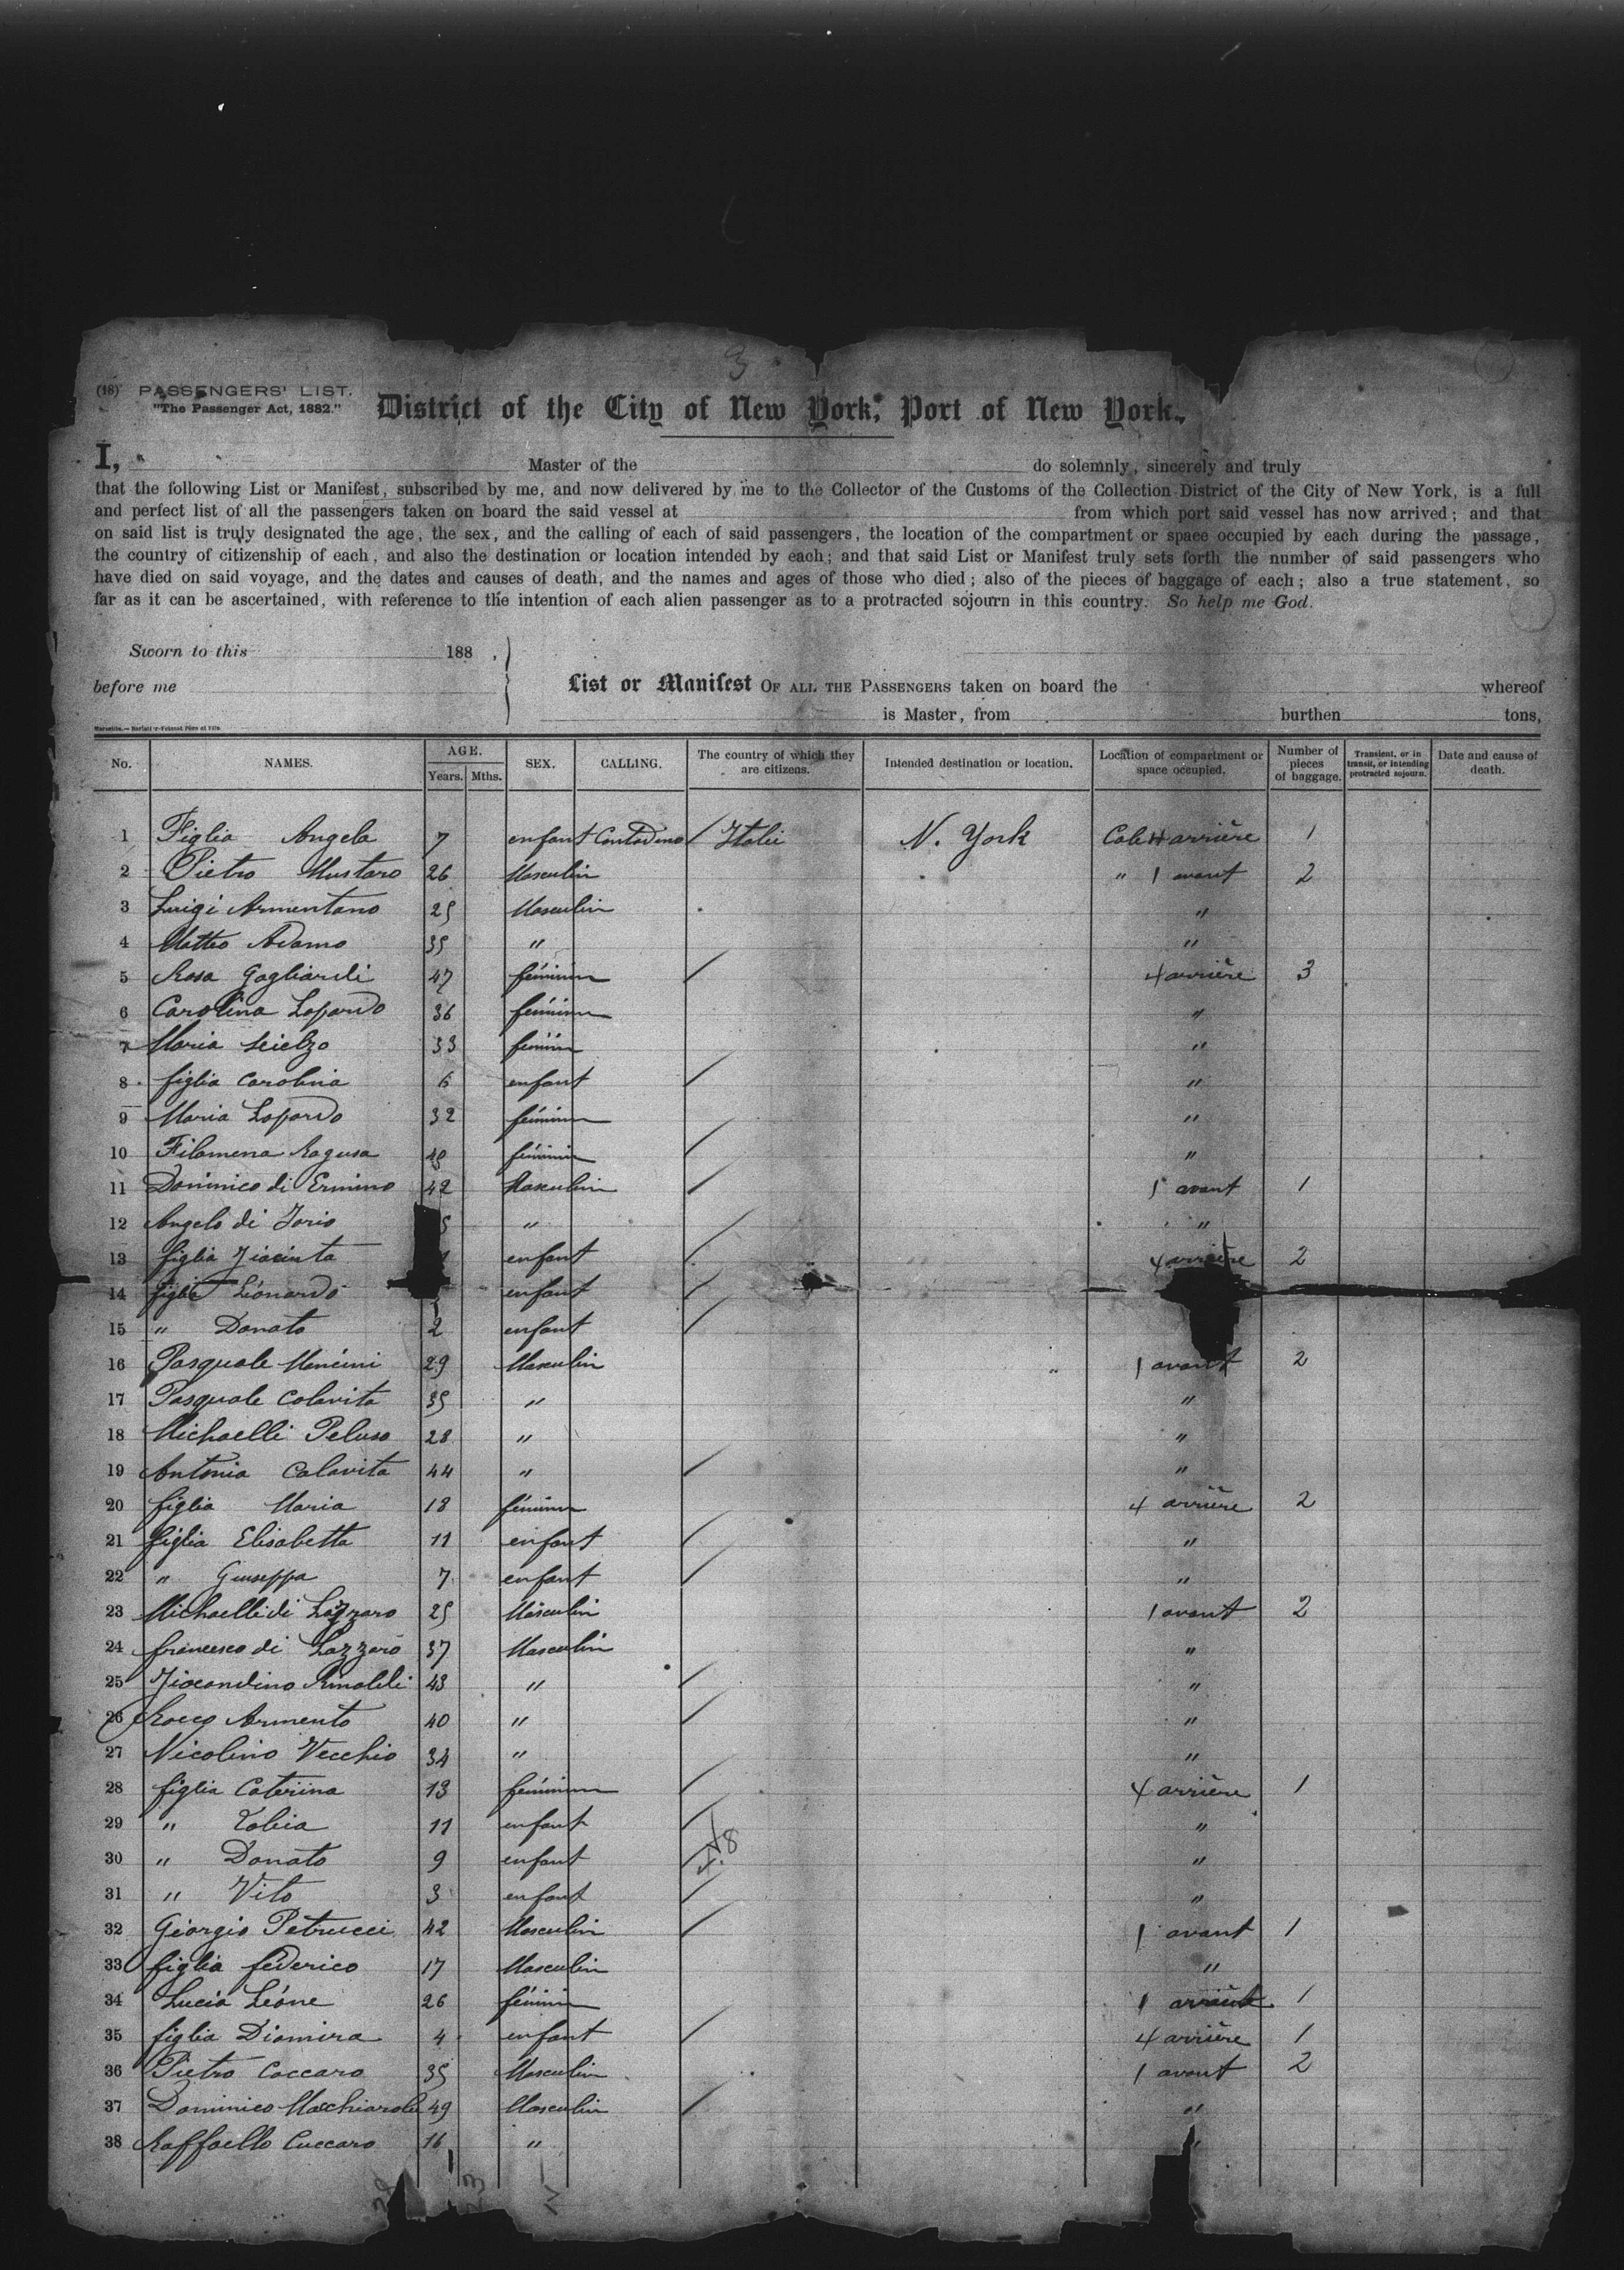 3
(18) PASSENGERS' LIST.
"The Passenger Act, 1882."
District of the City of New York, Port of New York.
I, Master of the do solemnly, sincerely and truly
that the following List or Manifest, subscribed by me, and now delivered by me to the Collector of the Customs of the Collection District of the City of New York, is a full
and perfect list of all the passengers taken on board the said vessel at from which port said vessel has now arrived; and that
on said list is truly designated the age, the sex, and the calling of each of said passengers, the location of the compartment or space occupied by each during the passage,
the country of citizenship of each, and also the destination or location intended by each; and that said List or Manifest truly sets forth the number of said passengers who
have died on said voyage, and the dates and causes of death, and the names and ages of those who died; also of the pieces of baggage of each; also a true statement, so
far as it can be ascertained, with reference to the intention of each alien passenger as to a protracted sojourn in this country. So help me God.
Sworn to this 188 ,
before me
List or Manifest OF ALL THE PASSENGERS taken on board the whereof
is Master, from burthen tons,
No. NAMES. AGE. Years. Mths. SEX. CALLING. The country of which they are citizens. Intended destination or location. Location of compartment or space occupied. Number of pieces of baggage. Transient, or in transit, or intending protracted sojourn. Date and cause of death.
1 Figlia Angela 7 enfant Contadino Italie N. York Cale 4 arrière 1
2 Pietro Mustaro 26 Masculin " 1 avant 2
3 Luigi Armentano 25 Masculin "
4 Matteo Adamo 35 " "
5 Rosa Gagliardi 47 féminin 4 arrière 3
6 Carolina Lopardo 36 féminin "
7 Maria Scielzo 33 féminin "
8 figlia Carolina 6 enfant "
9 Maria Lopardo 32 féminin "
10 Filomena Ragusa féminin "
11 Dominico di Ermino 42 Masculin 1 avant 1
12 Angelo di Iorio 5 " "
13 figlia Giacinta enfant 4 arrière 2
14 figlio Léonardo enfant
15 " Donato 2 enfant
16 Pasquale Mancini 29 Masculin 1 avant 2
17 Pasquale Colavita 35 " "
18 Michaelli Peluso 28 " "
19 Antonia Colavita 44 " "
20 figlia Maria 18 féminin 4 arrière 2
21 figlia Elisabetta 11 enfant "
22 " Giuseppa 7 enfant "
23 Michaelli di Lazzaro 25 Masculin 1 avant 2
24 francesco di Lazzaro 37 Masculin "
25 Giocondino Rinaldi 43 " "
26 Rocco Armento 40 " "
27 Nicolino Vecchio 34 " "
28 figlia Caterina 13 féminin 4 arrière 1
29 " Tobia 11 enfant "
30 " Donato 9 enfant "
31 " Vito 3 enfant "
32 Giorgio Petrucci 42 Masculin 1 avant 1
33 figlia federico 17 Masculin "
34 Lucia Léone 26 féminin 1
35 figlia Diomira 4 enfant 4 arrière 1
36 Pietro Coccaro 35 Masculin 1 avant 2
37 Dominico Macchiarola 49 Masculin "
38 Raffaello Cuccaro 16 " "